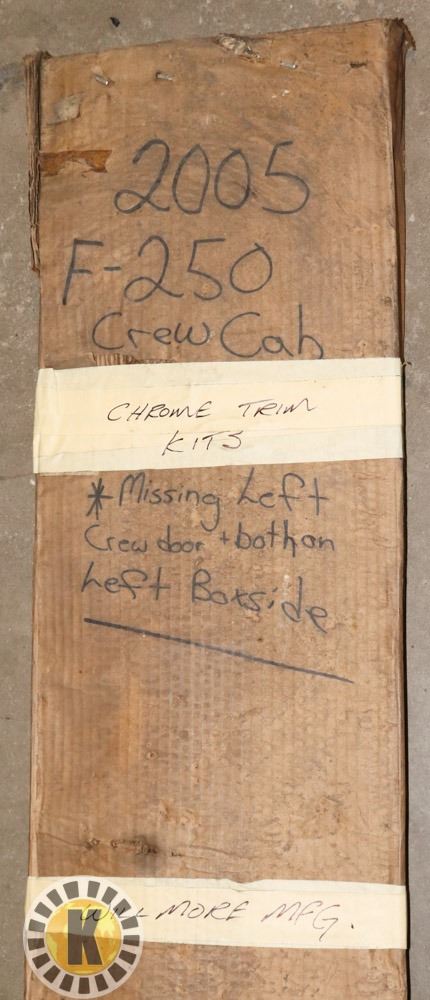 2005
F-250
Crew Cab
CHROME TRIM
KITS
* Missing Left
Crew door + both on
Left Boxside
WILLMORE MFG.
K